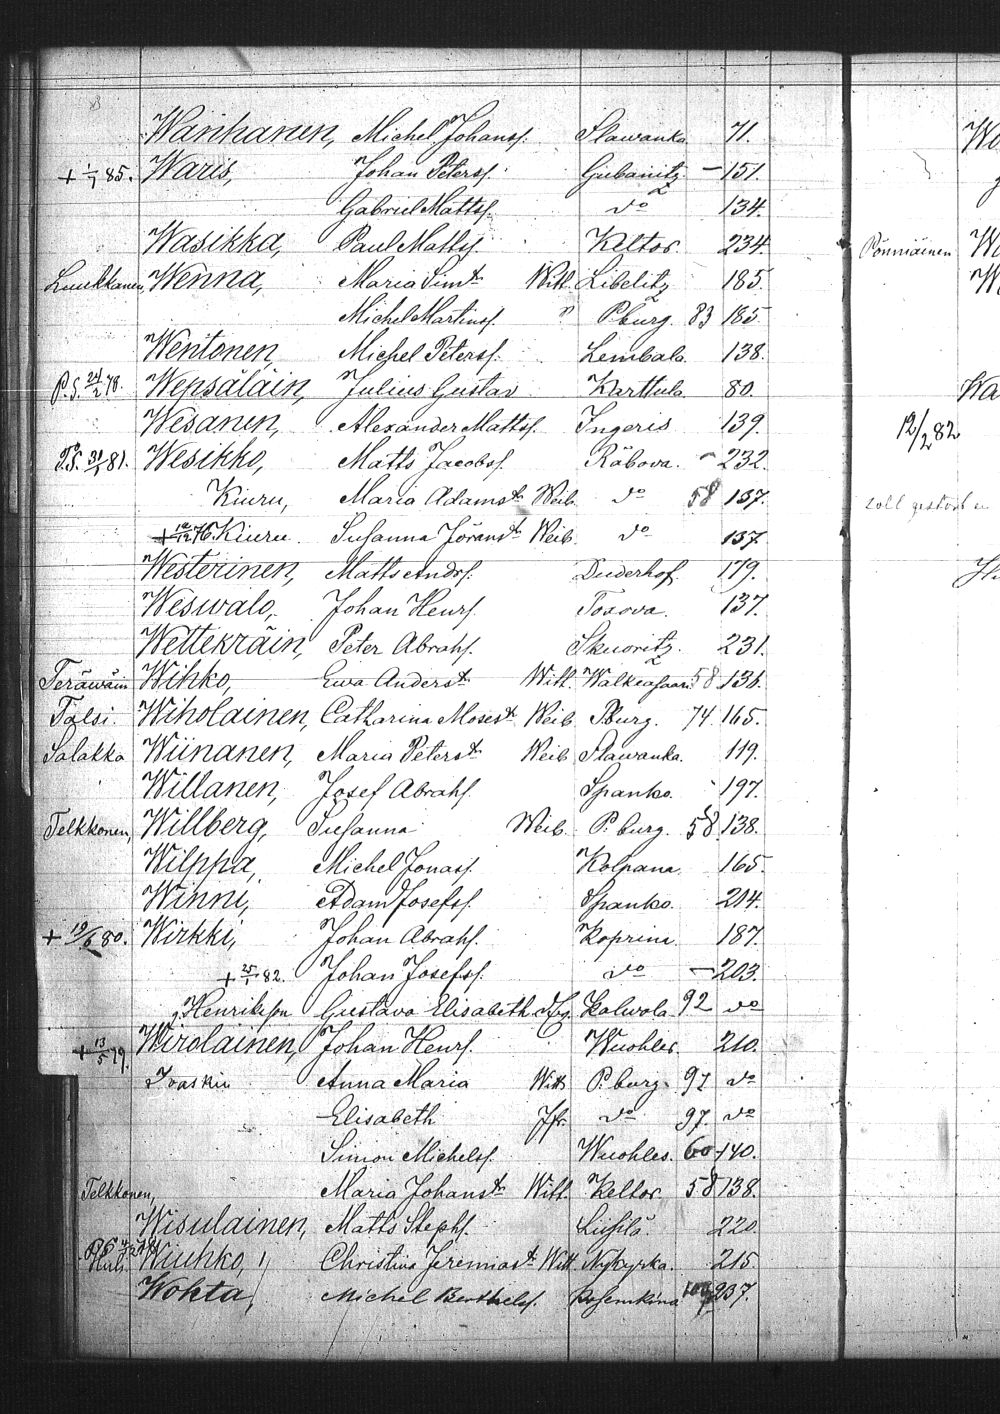 Wanhanen, Michel Johansf. Slawanka 71.
+ 1/7 85. Waris, Johan Petersf. Gubanitz — 151.
Gabriel Mattsf. do 134.
Wasikka, Paul Mattsf. Keltos 234.
Luukkanen, Wenna, Maria Simst Witt. Libelitz 185.
Michel Martinsf. " P.burg. 83 185
Wentonen, Michel Petersf. Lembala 138.
P.S. 24/2 78. Wepsäläin, Julius Gustav Karttula 80.
Wesanen, Alexander Mattsf. Ingeris 139.
P.S. 31/1 81. Wesikko, Matts Jacobsf. Räbova. 232.
Kiuru, Maria Adamst Weib do 58 137.
+ 12/12 76. Kiuru Susanna Jöranst Weib do 137
Westerinen, Matts Andrsf. Duderhof 179.
Weswalo, Johan Henrsf. Toxova. 137.
Wettekräin, Peter Abrahsf. Skuoritz. 231.
Teräwäin Wihko, Ewa Anderst Witt. Walkeasaari 58 136.
Talsi. Wiholainen, Catharina Mosest Weib P.burg. 74. 165.
Salakka Wiinanen, Maria Peterst Weib Slawanka. 119.
Willanen, Josef Abrahsf. Spanko. 197.
Telkkonen, Willberg, Susanna Weib. P.burg. 58. 138.
Wilppa, Michel Jonasf. Kolpana 165.
Winni, Adam Josefsf. Spanko. 214.
+ 19/6 80. Wirkki, Johan Abrahsf. Koprina 187.
+ 25/1 82. Johan Josefsf. do — 203.
Henriksson Gustava Elisabeth Kalwola 92 do
+ 13/5 79. Wirolainen, Johan Henrsf. Wuohles. 210.
Ivaskii Anna Maria Witt P.burg. 97 do
Elisabeth Jfr. do 97. do
Simon Michelsf. Wuohles. 60 140.
Telkkonen, Maria Johanst Witt. Keltos 58 138.
Wisulainen, Matts Stephsf. Liissilä 220.
Wiuhko, Christina Jeremiast Witt. Nykyrka. 215.
Wohta, Michel Berthelsf. Rosenkina 237.
Pönniäinen
12/2 82